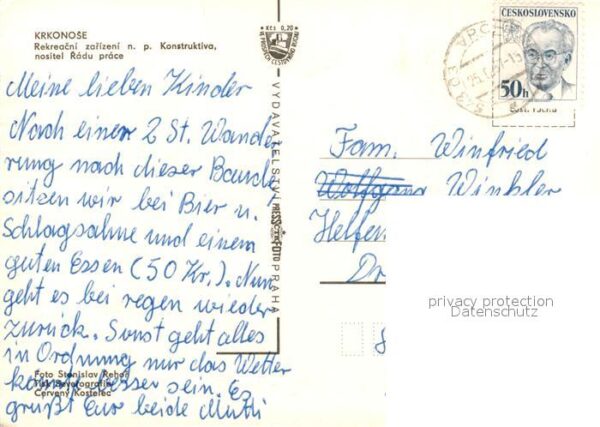 KRKONOŠE
Rekreační zařízení n. p. Konstruktiva,
nositel Řádu práce
Kčs 0,20
ČESKOSLOVENSKO
50h
VYDAVATELSTVÍ PRESSFOTO PRAHA
Meine lieben Kinder
Nach einer 2 St. Wande
rung nach dieser Baude
sitzen wir bei Bier u.
Schlagsahne und einem
guten Essen (50 Kr.). Nun
geht es bei regen wieder
zurück. Sonst geht alles
in Ordnung nur das Wetter
könnte besser sein. Es
grüßt Eur beide Mutti
Foto Stanislav Řehoř
Tisk Severografia
Červený Kostelec
Fam. Winfried
Wolfgang Winkler
Helfen
Dr
privacy protection
Datenschutz